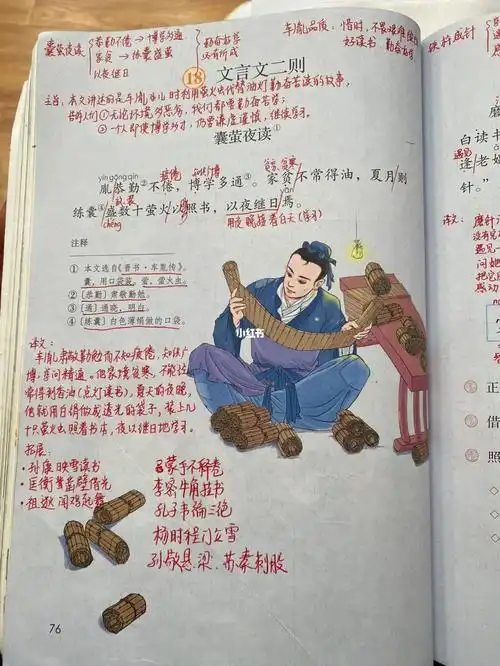 囊萤夜读
恭勤不倦→博学多通
家贫→练囊盛萤
以夜继日
勤奋苦学
必有所成
车胤品质:惜时,不畏艰难
好读书
18 文言文二则
主旨:本文讲述的是车胤小时利用萤火虫代替油灯勤奋苦读的故事,
告诉人们①无论环境多恶劣,我们都要勤奋苦学;
②一个人即使博学多才,仍要谦虚谨慎,继续学习。
囊萤夜读①
yín gōng qín
疲倦
贫穷、贫寒
胤恭勤②不倦,博学多通③。家贫不常得油,夏月则
chéng
yān
练囊④盛数十萤火以照书,以夜继日焉。
用夜晚接着白天(学习)
注释
① 本文选自《晋书·车胤传》。
囊,用口袋装。萤,萤火虫。
②〔恭勤〕肃敬勤勉。
③〔通〕通晓,明白。
④〔练囊〕白色薄绢做的口袋。
小红书
译文:
车胤肃敬勤勉而不知疲倦,知识广
博,学问精通。他家境贫寒,不能经
常得到香油(点灯读书)。夏天的夜晚,
他就用白绢做成透光的袋子,装上几
十只萤火虫照着书本,夜以继日地学习。
拓展:
·孙康映雪读书
·匡衡凿壁借光
·祖逖闻鸡起舞
吕蒙手不释卷
李密牛角挂书
孔子韦编三绝
杨时程门立雪
孙敬悬梁、苏秦刺股
76
铁杵成针
白读书
逢老媪
针。”
译文:
没有
遇见一
问她
把它
感动
正
借
照